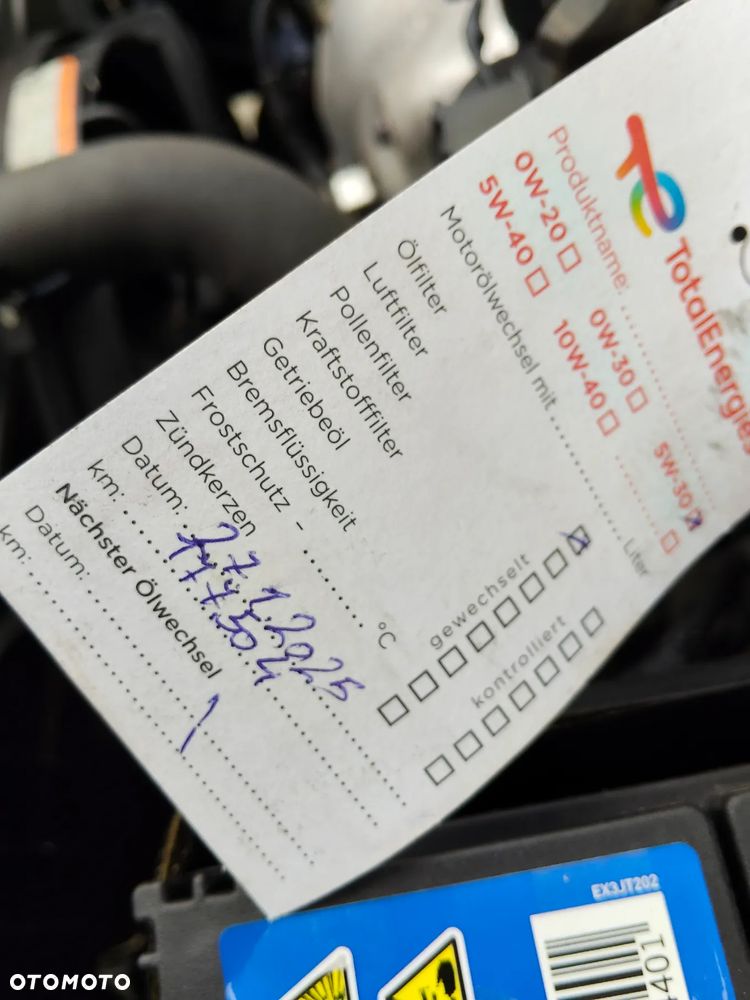 TotalEnergies
Produktname: ..............
0W-20 ☐ 0W-30 ☐ 5W-30 ☒
5W-40 ☐ 10W-40 ☐ ........ ☐
Motorölwechsel mit .................... Liter
gewechselt
kontrolliert
Ölfilter ☒ ☐
Luftfilter ☐ ☐
Pollenfilter ☐ ☐
Kraftstofffilter ☐ ☐
Getriebeöl ☐ ☐
Bremsflüssigkeit ☐ ☐
Frostschutz - ............ °C
Zündkerzen ☐
Datum:
km:
Nächster Ölwechsel
Datum: ....................
km: ....................
EX3JT202
401
OTOMOTO